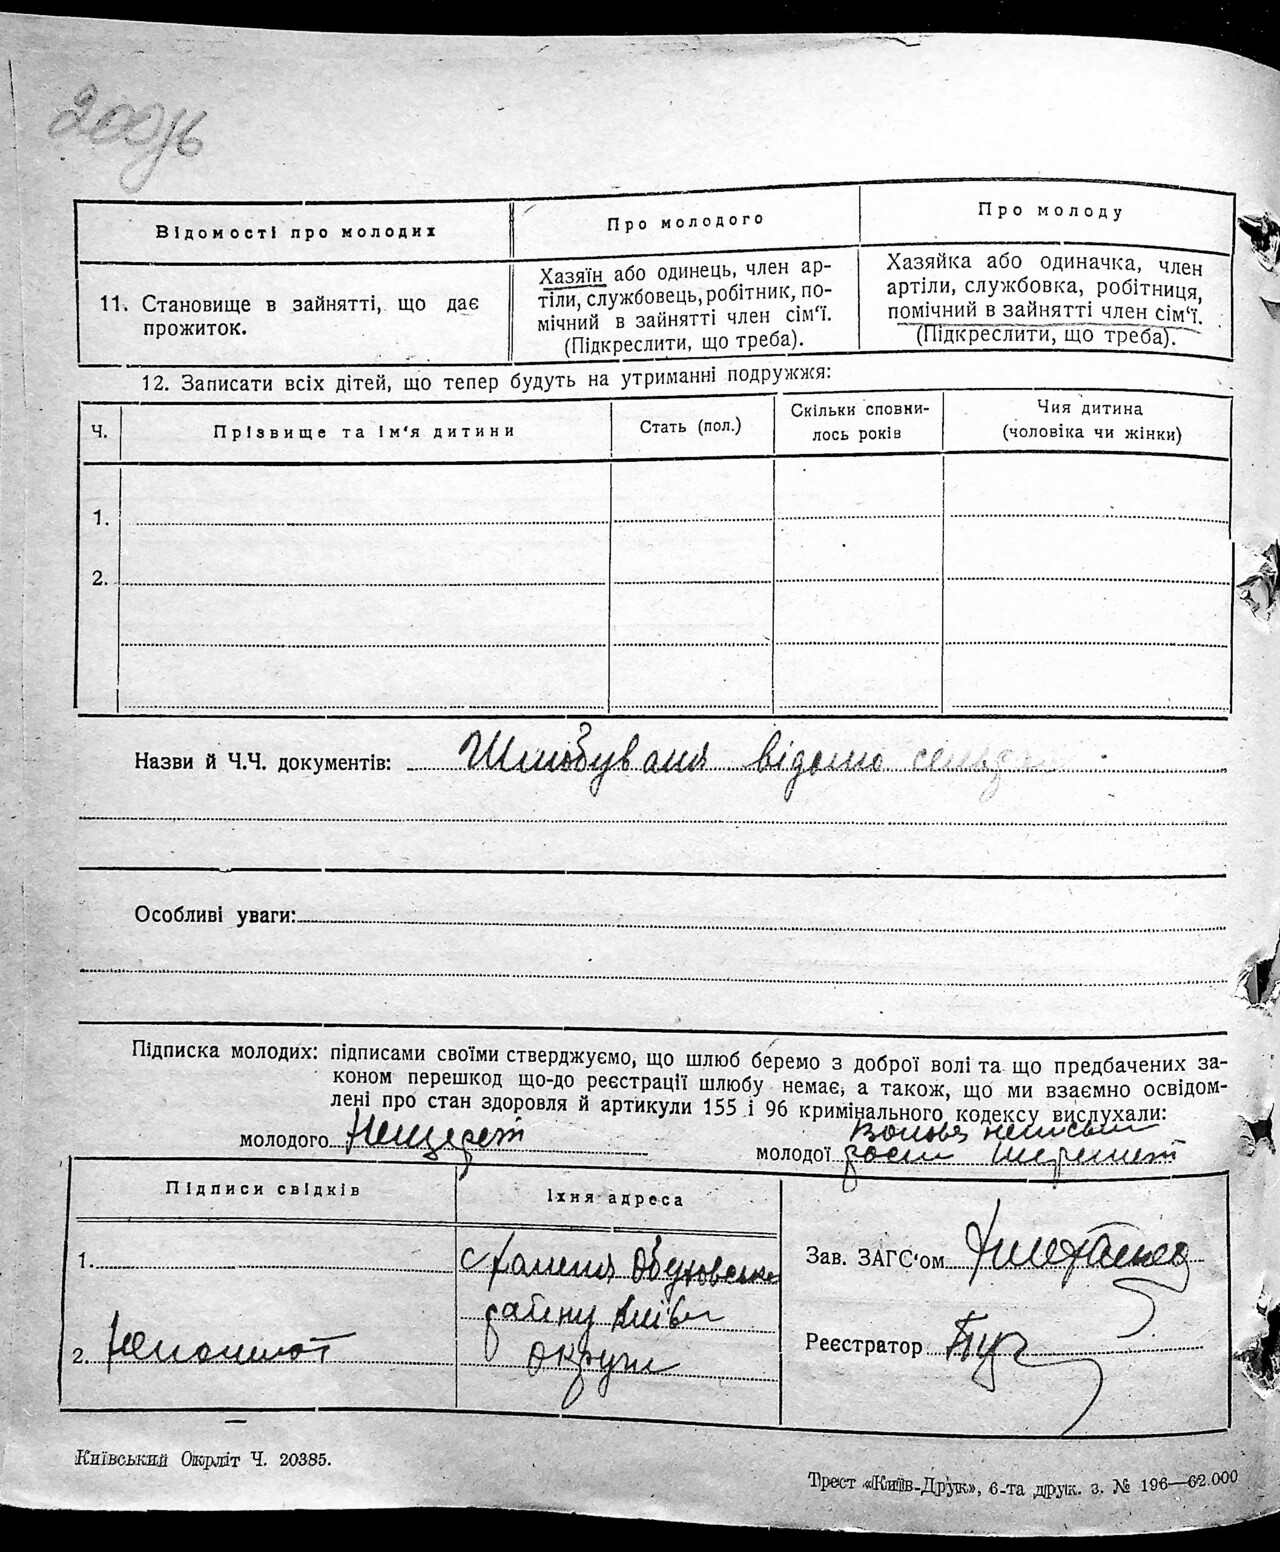 200/6
Відомості про молодих
Про молодого
Про молоду
11. Становище в зайнятті, що дає
прожиток.
Хазяїн або одинець, член ар-
тіли, службовець, робітник, по-
мічний в зайнятті член сім'ї.
(Підкреслити, що треба).
Хазяйка або одиначка, член
артіли, службовка, робітниця,
помічний в зайнятті член сім'ї.
(Підкреслити, що треба).
12. Записати всіх дітей, що тепер будуть на утриманні подружжя:
Ч.
Прізвище та ім'я дитини
Стать (пол.)
Скільки сповни-
лось років
Чия дитина
(чоловіка чи жінки)
1.
2.
Назви й Ч.Ч. документів: відомо
Особливі уваги:
Підписка молодих: підписами своїми стверджуємо, що шлюб беремо з доброї волі та що предбачених за-
коном перешкод що-до реєстрації шлюбу немає, а також, що ми взаємно освідом-
лені про стан здоровля й артикули 155 і 96 кримінального кодексу вислухали:
молодого
молодої
Підписи свідків
Їхня адреса
1.
с
району Київ
2.
округи
Зав. ЗАГС'ом
Реєстратор
Київський Окрліт Ч. 20385.
Трест «Київ-Друк», 6-та друк. з. № 196—62.000